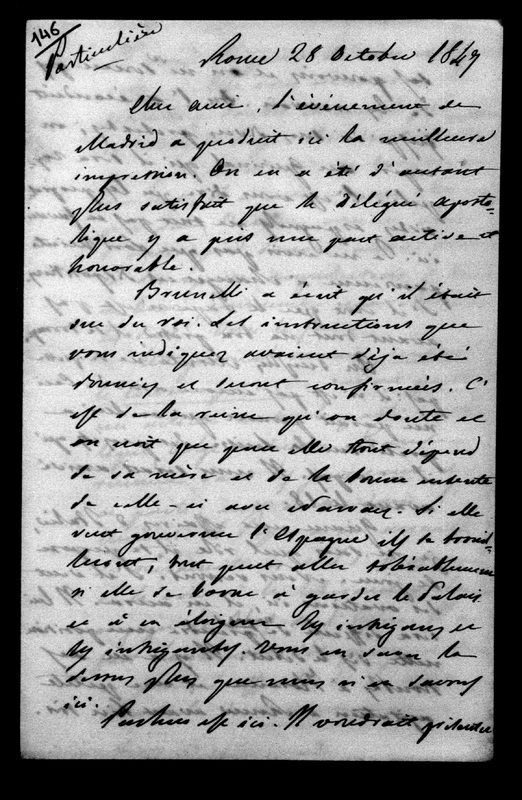 146
Particulière
Rome 28 Octobre 1847
Cher ami, l'événement de
Madrid a produit ici la meilleure
impression. On en a été d'autant
plus satisfait que le Délégué aposto-
lique y a pris une part active et
honorable.
Brunelli a écrit qu'il était
sur du roi. Les instructions que
vous indiquez avaient déja été
données et seront confirmées. C'
est de la reine qu'on doute et
on croit que pour elle tout dépend
de sa mère et de la bonne entente
de celle-ci avec Narvaez. Si elle
veut gouverner l'Espagne ils se brouil-
leront, tout peut aller tolérablement
si elle se borne à garder le Palais
et à en éloigner les intrigans et
les intrigantes. Vous en savez la
dessus plus que nous n'en savons
ici.
est ici. Il voudrait